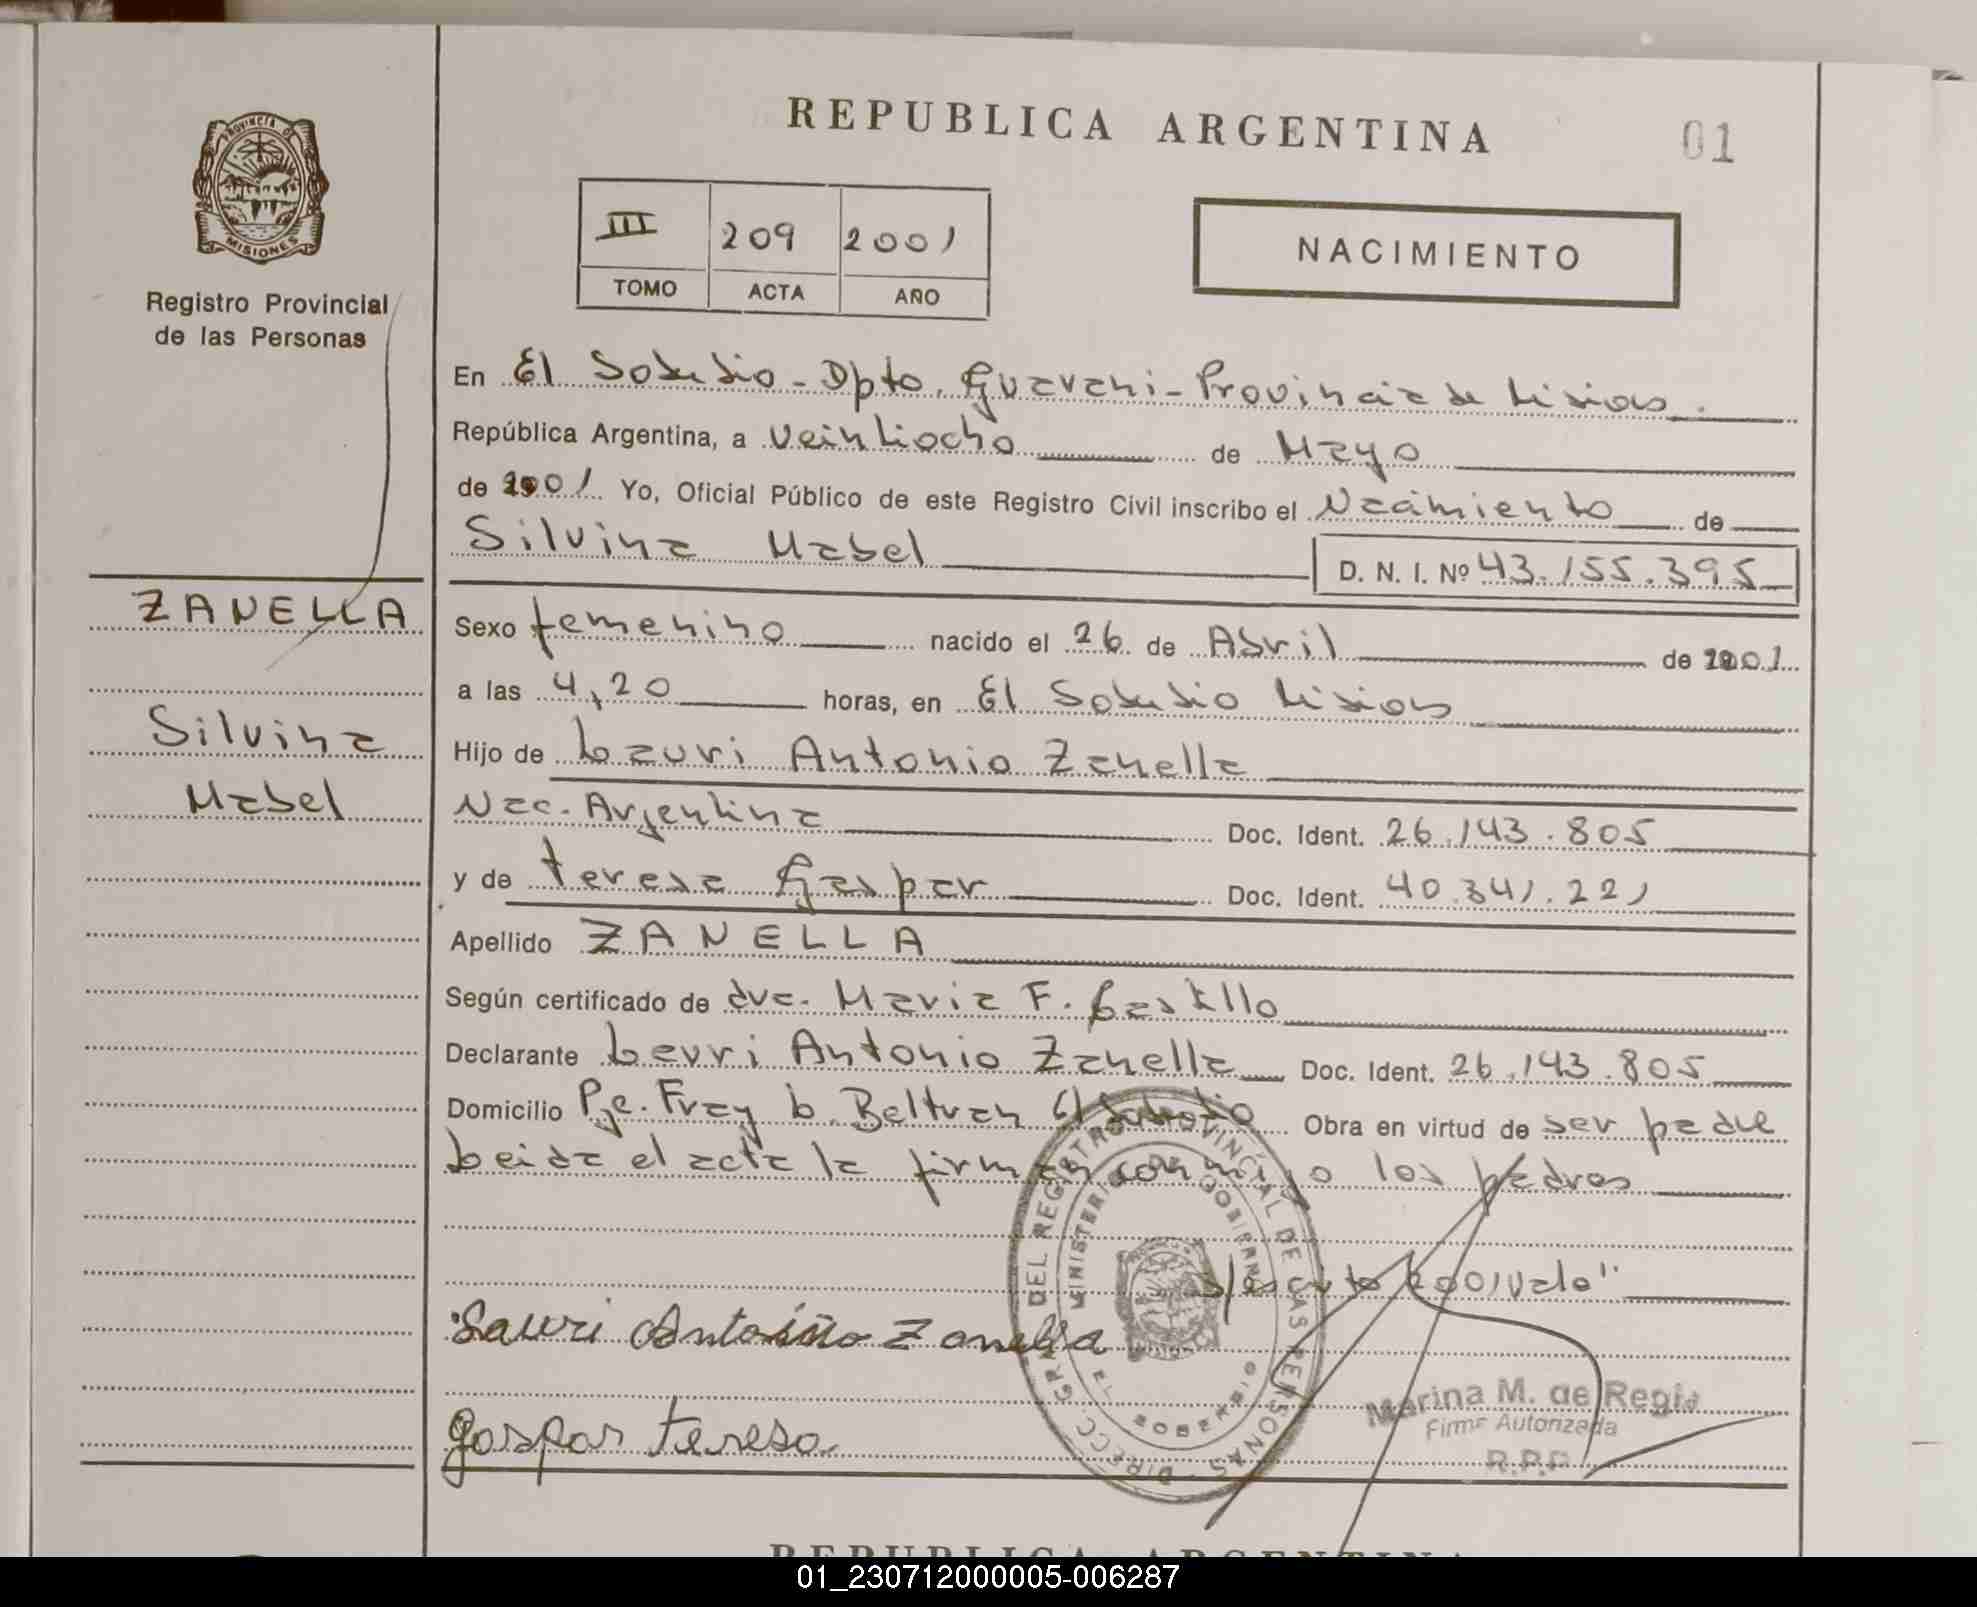 REPUBLICA ARGENTINA
01
PROVINCIA DE
MISIONES
Registro Provincial
de las Personas
III 209 2001
TOMO ACTA AÑO
NACIMIENTO
En El Soberbio - Dpto. Guarani - Provincia de Misiones.
República Argentina, a Veintiocho de Mayo
de 2001 Yo, Oficial Público de este Registro Civil inscribo el Nacimiento de
Silvina Mabel D. N. I. Nº 43.155.395
ZANELLA
Silvina
Mabel
Sexo femenino nacido el 26 de Abril de 2001
a las 4,20 horas, en El Soberbio Misiones
Hijo de Lauri Antonio Zanella
Nac. Argentina Doc. Ident. 26.143.805
y de Teresa Gaspar Doc. Ident. 40.341.221
Apellido ZANELLA
Según certificado de dra. Maria F. Castillo
Declarante Lauri Antonio Zanella Doc. Ident. 26.143.805
Domicilio Pje. Fray L. Beltran El Soberbio Obra en virtud de ser padre
Leida el acta la firman conmigo los padres
s/escrito 2001 vale"
Lauri Antonio Zanella
Gaspar Teresa
DIRECC. GRAL. DEL REGISTRO PROVINCIAL DE LAS PERSONAS
MINISTERIO DE GOBIERNO
EL SOBERBIO
Marina M. de Regis
Firma Autorizada
R.P.P.
REPUBLICA ARGENTINA
01_230712000005-006287